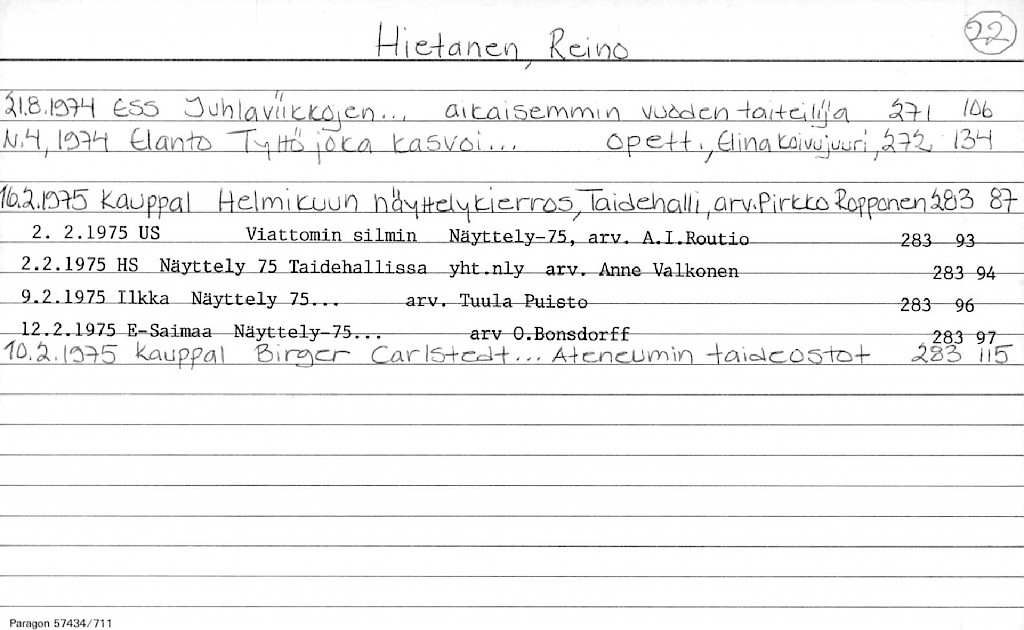 Hietanen, Reino
22
21.8.1974 ESS Juhlaviikkojen... aikaisemmin vuoden taiteilija 271 106
N:4, 1974 Elanto Tyttö joka kasvoi... opett., Elina Koivujuuri, 272 134
10.2.1975 Kauppal Helmikuun näyttelykierros, Taidehalli, arv. Pirkko Ropponen 283 87
2. 2.1975 US Viattomin silmin Näyttely-75, arv. A.I.Routio 283 93
2.2.1975 HS Näyttely 75 Taidehallissa yht.nly arv. Anne Valkonen 283 94
9.2.1975 Ilkka Näyttely 75... arv. Tuula Puisto 283 96
12.2.1975 E-Saimaa Näyttely-75... arv O.Bonsdorff 283 97
10.2.1975 Kauppal Birger Carlstedt... Ateneumin taideostot 283 115
Paragon 57434/711